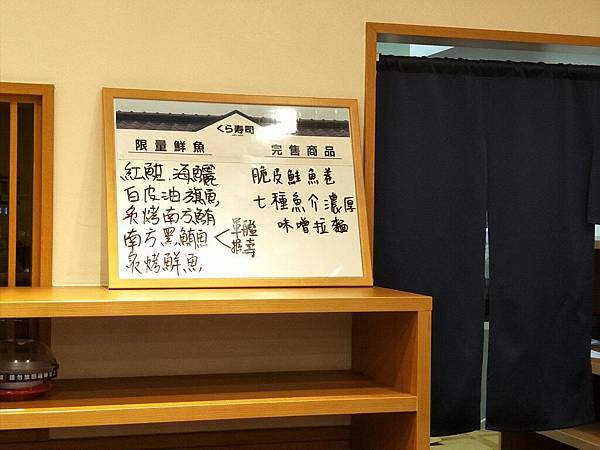 くら寿司
限量鮮魚
紅魽 海鱺
白皮油旗魚
炙烤南方鮪
南方黑鮪魚 < 軍艦
握壽
炙烤鮮魚
完售商品
脆皮鮭魚卷
七種魚介濃厚
味噌拉麵